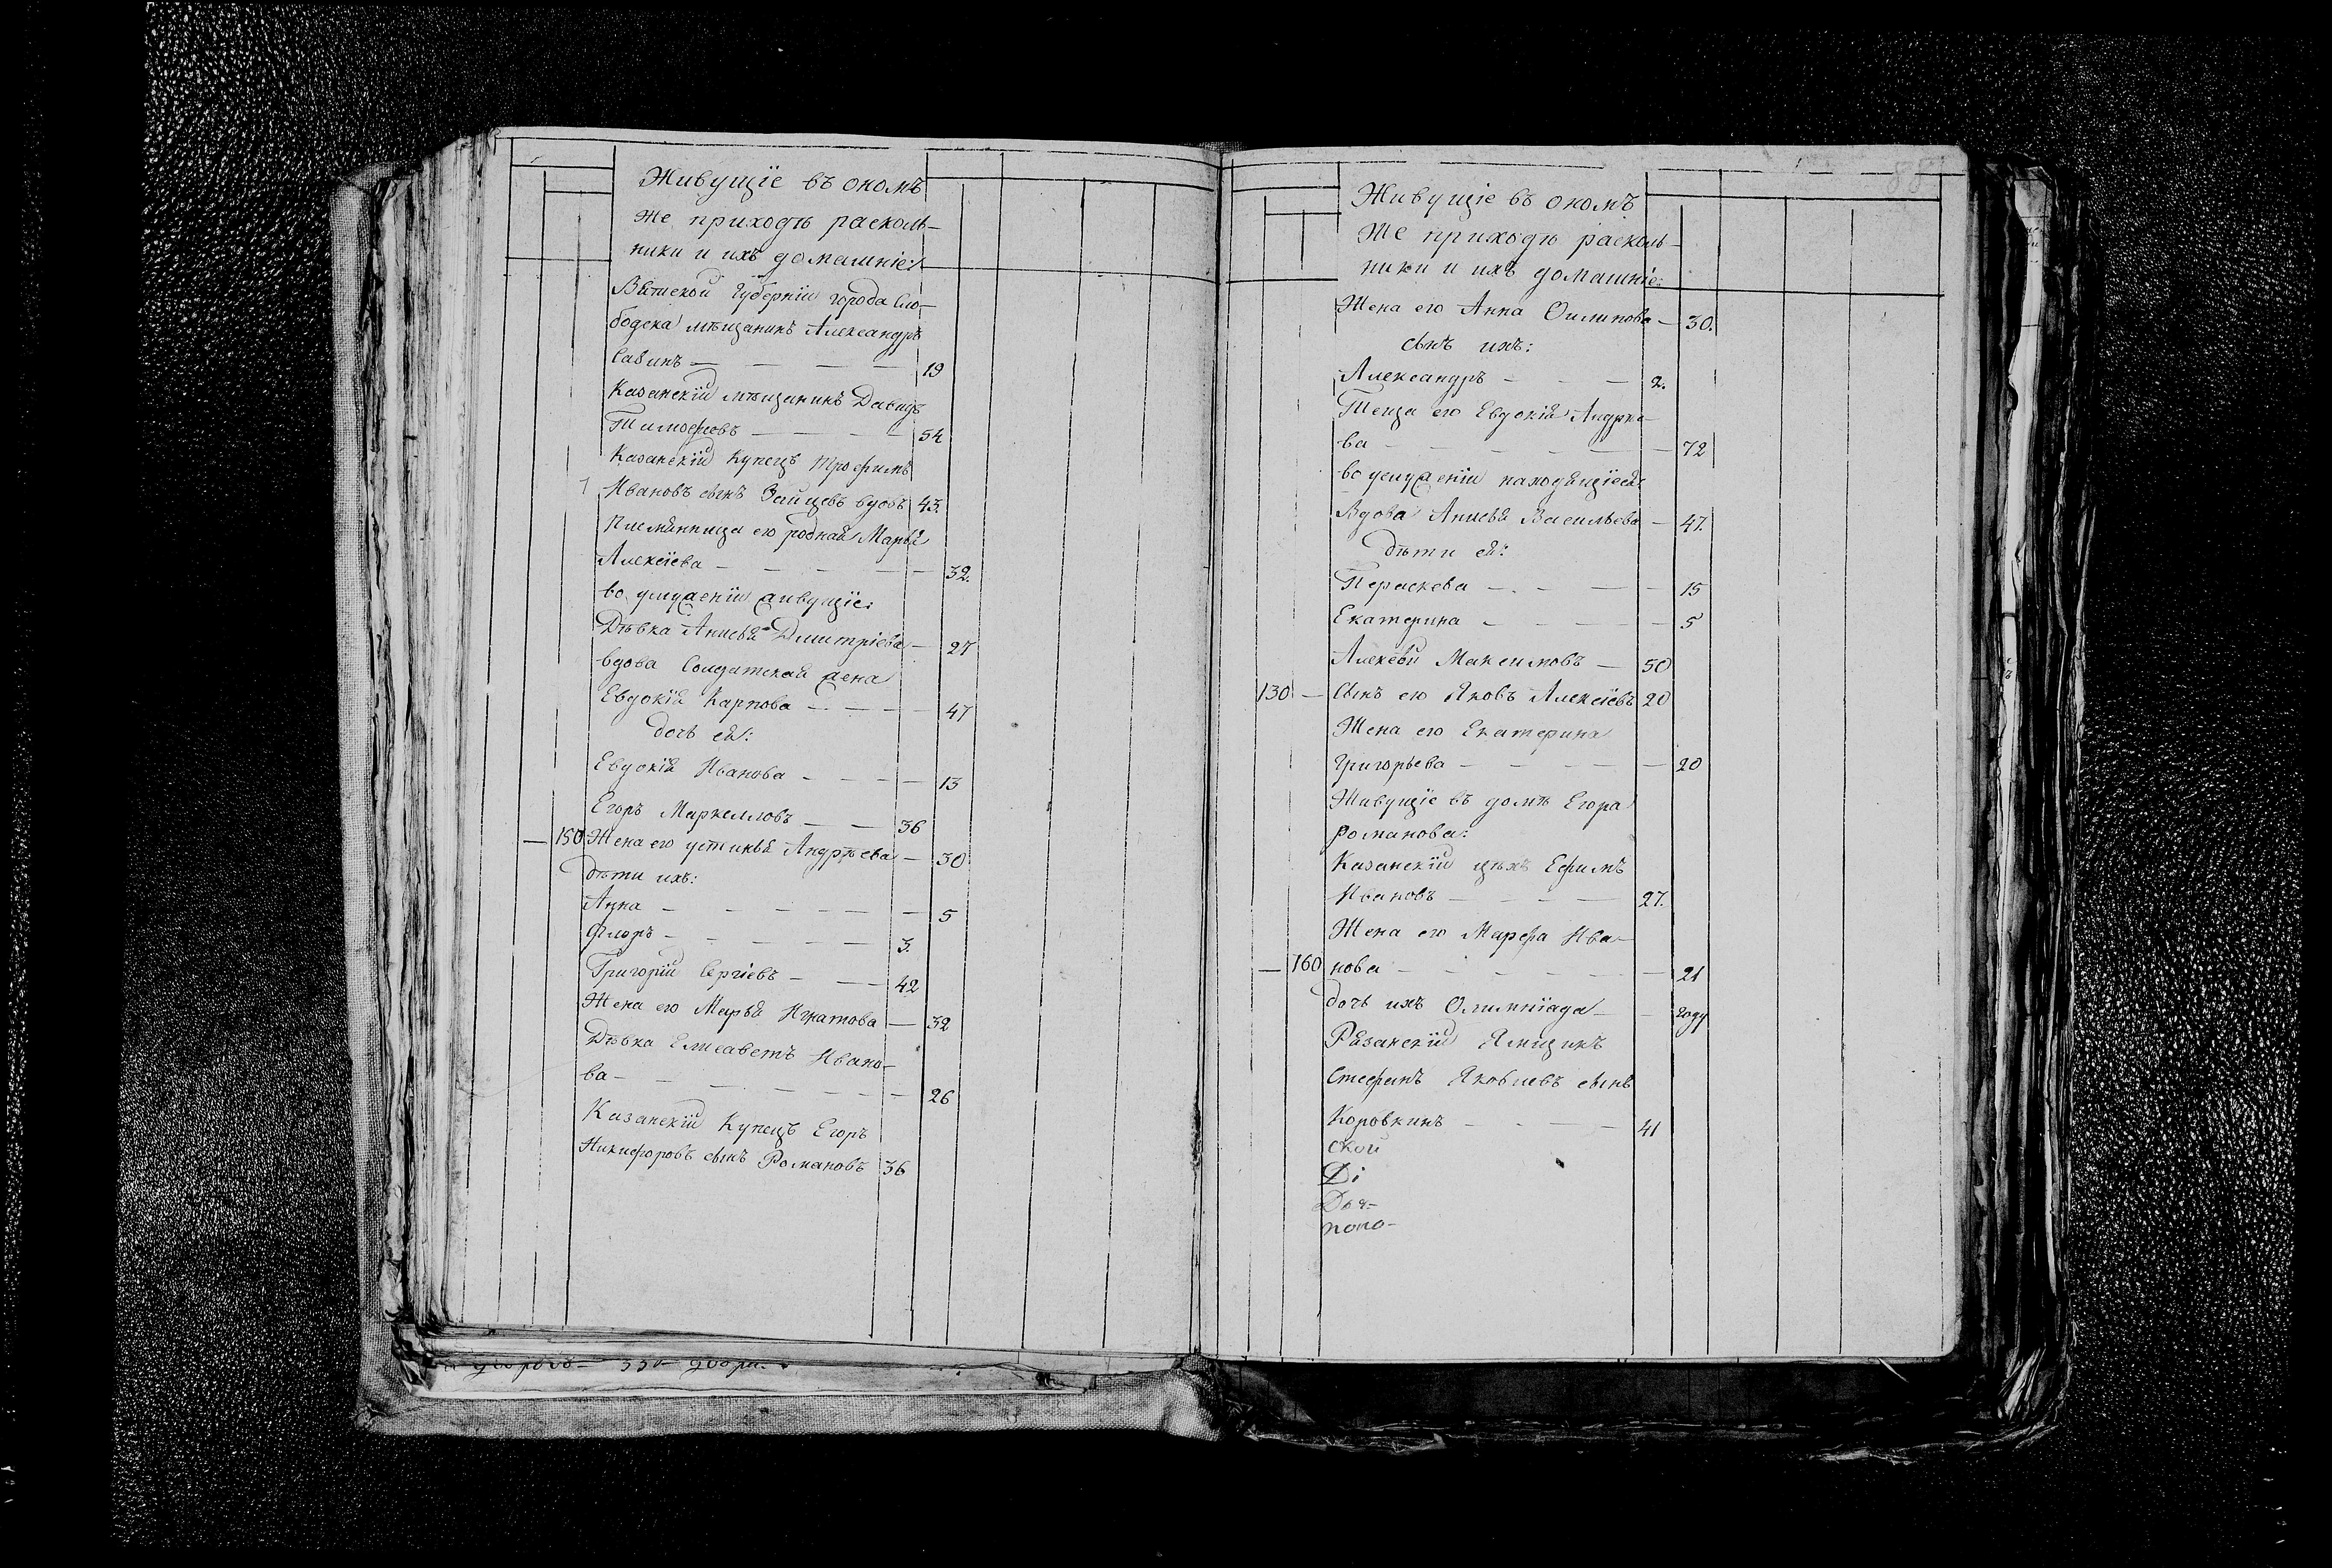 Живущіе въ ономъ
же приходѣ расколь-
ники и ихъ домашніе:
Вятской Губерніи города Сло-
бодска мѣщанинъ Александръ
Савинъ — — — — 19
Казанскій мѣщанинъ Давидъ
Тимофеевъ — — — — 54
Казанскій купецъ Трофимъ
Ивановъ сынъ Зайцевъ вдовъ 43.
Племянница его родная Марья
Алексіева — — — — — 32.
во услуженіи живущіе:
Дѣвка Анисья Дмитріева — 27
вдова Солдатская жена
Евдокія Карпова — — — — 47
дочь ея:
Евдокія Иванова — — — — 13
Егоръ Маркелловъ — — 36
— 150 Жена его устинья Андрѣева — 30
дѣти ихъ:
Анна — — — — — — 5
Флоръ — — — — — 3.
Григорій Сергіевъ — — — 42
Жена его Марья Игнатова — 32
Дѣвка Елисаветъ Ивано-
ва — — — — — — 26
Казанскій Купецъ Егоръ
Никифоровъ сынъ Романовъ 36
88
Живущіе въ ономъ
же приходѣ расколь-
ники и ихъ домашніе:
Жена его Анна Филипова — 30.
сынъ ихъ:
Александръ — — — 2.
Теща его Евдокія Андрее-
ва — — — — — 72
во услуженіи находящіеся:
Вдова Анисья Васильева — 47.
дѣти ея:
Параскева — — — — 15
Екатерина — — — — 5
Алексѣй Максимовъ — 50
130 — Сынъ его Яковъ Алексіевъ 20
Жена его Екатерина
Григорьева — — — — — 20
Живущіе въ домѣ Егора
романова:
Казанскій цѣхъ Ефимъ
Ивановъ — — — — 27.
Жена его Марфа Ива-
— 160 нова — — — — — — 21
дочь ихъ Олимпіада — — году
Рязанскій Ямщикъ
Стефанъ Яковлевъ сынъ
Коровкинъ — — — — 41
ской
Ді
Доя-
попо-